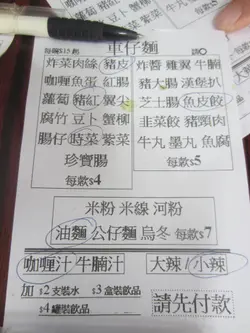 車仔麵
炸菜肉絲 豬皮
咖喱魚蛋 紅腸
蘿蔔 豬紅 翼尖
腐竹 豆卜 蟹柳
腸仔 時菜 紫菜
珍寶腸
每款$4
炸醬 雞翼 牛腩
豬大腸 漢堡扒
芝士腸 魚皮餃
韭菜餃 豬頸肉
牛丸 墨丸 魚腐
每款$5
米粉 米線 河粉
油麵 公仔麵 烏冬 每款$7
咖喱汁 牛腩汁
大辣 小辣
加 $2支裝水 $3盒裝飲品
$4罐裝飲品
請先付款